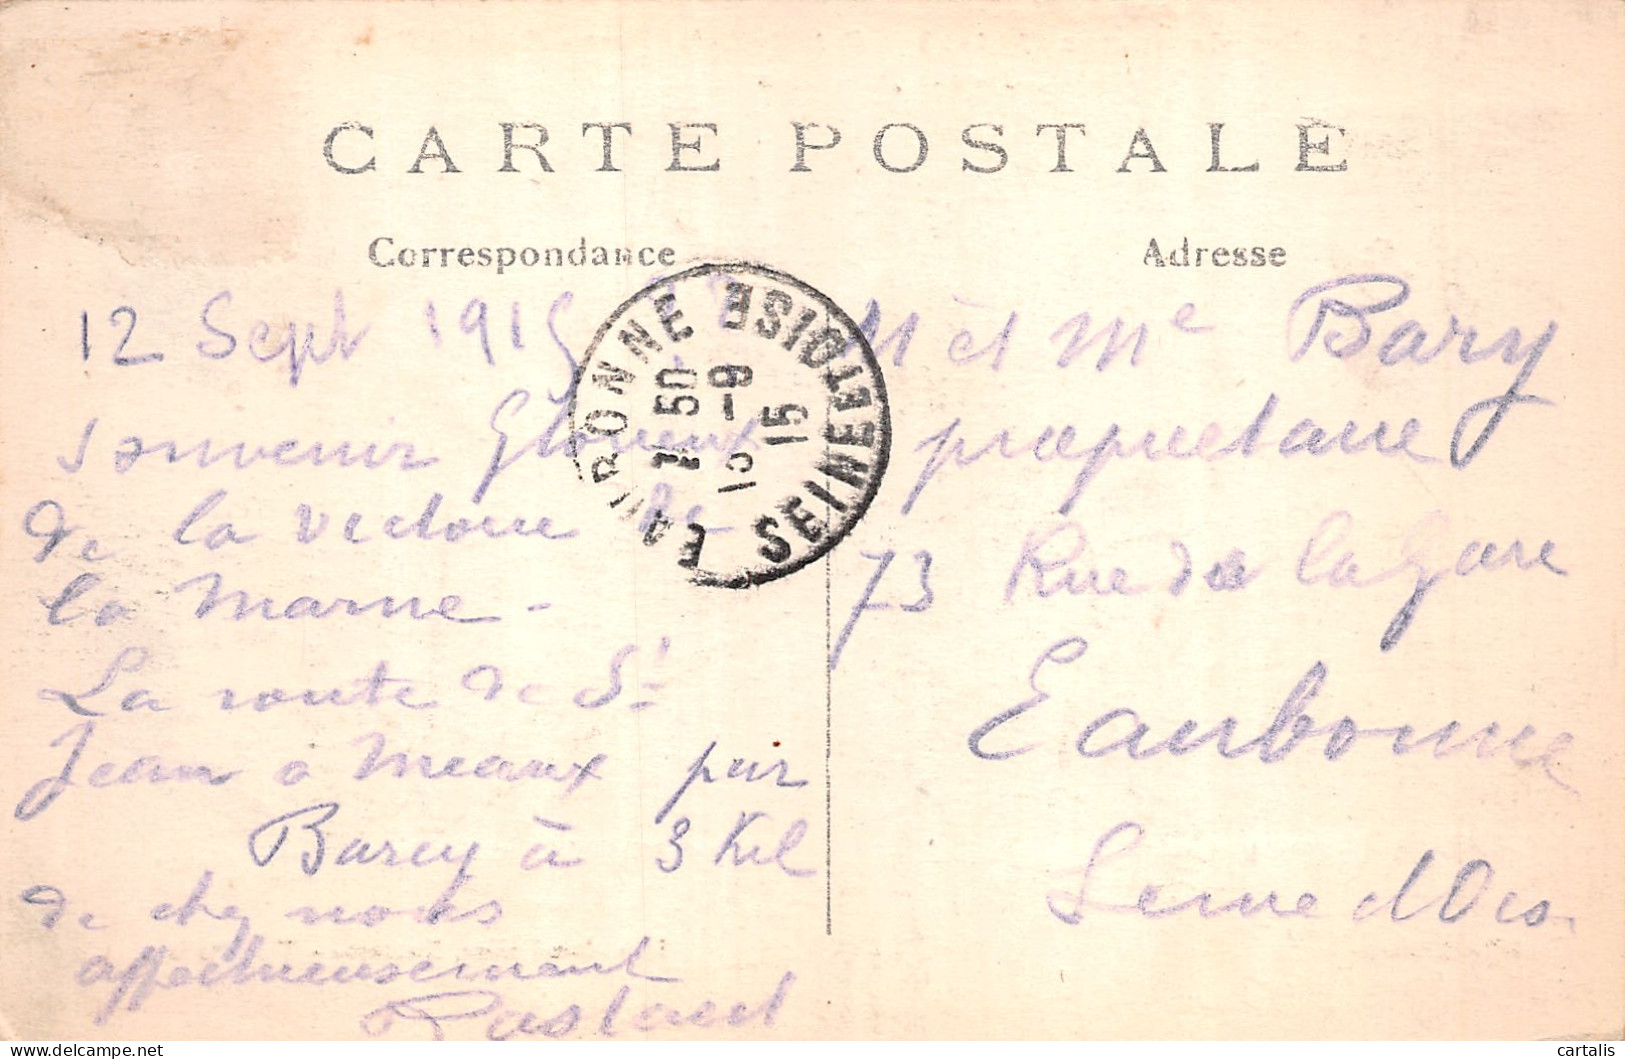 CARTE POSTALE
Correspondance
Adresse
12 Sept 1915
souvenir Glorieux
de la victoire de
la Marne -
La route de St
Jean a Meaux par
Barcy à 3 Kil
de chez nous
affectueusement
Rostand
EAUBONNE SEINE ET OISE
7 50
15 - 9
15
M et Me Bary
propriétaire
73 Rue de la Gare
Eaubonne
Seine et Oise
delcampe.net
cartalis